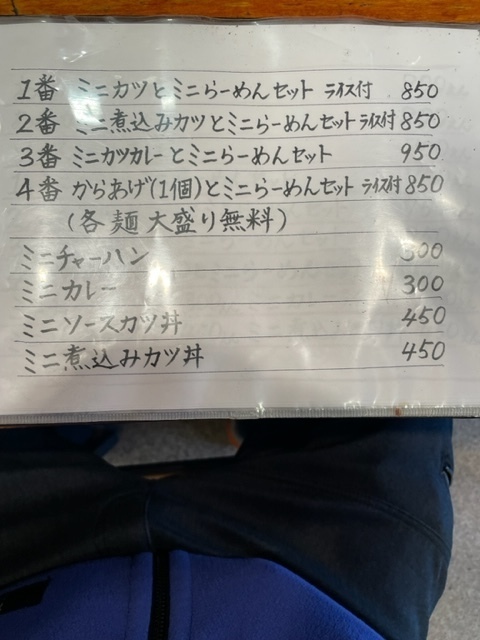 1番 ミニカツとミニらーめんセット ライス付 850
2番 ミニ煮込みカツとミニらーめんセット ライス付 850
3番 ミニカツカレーとミニらーめんセット 950
4番 からあげ(1個)とミニらーめんセット ライス付 850
(各麺大盛り無料)
ミニチャーハン 300
ミニカレー 300
ミニソースカツ丼 450
ミニ煮込みカツ丼 450